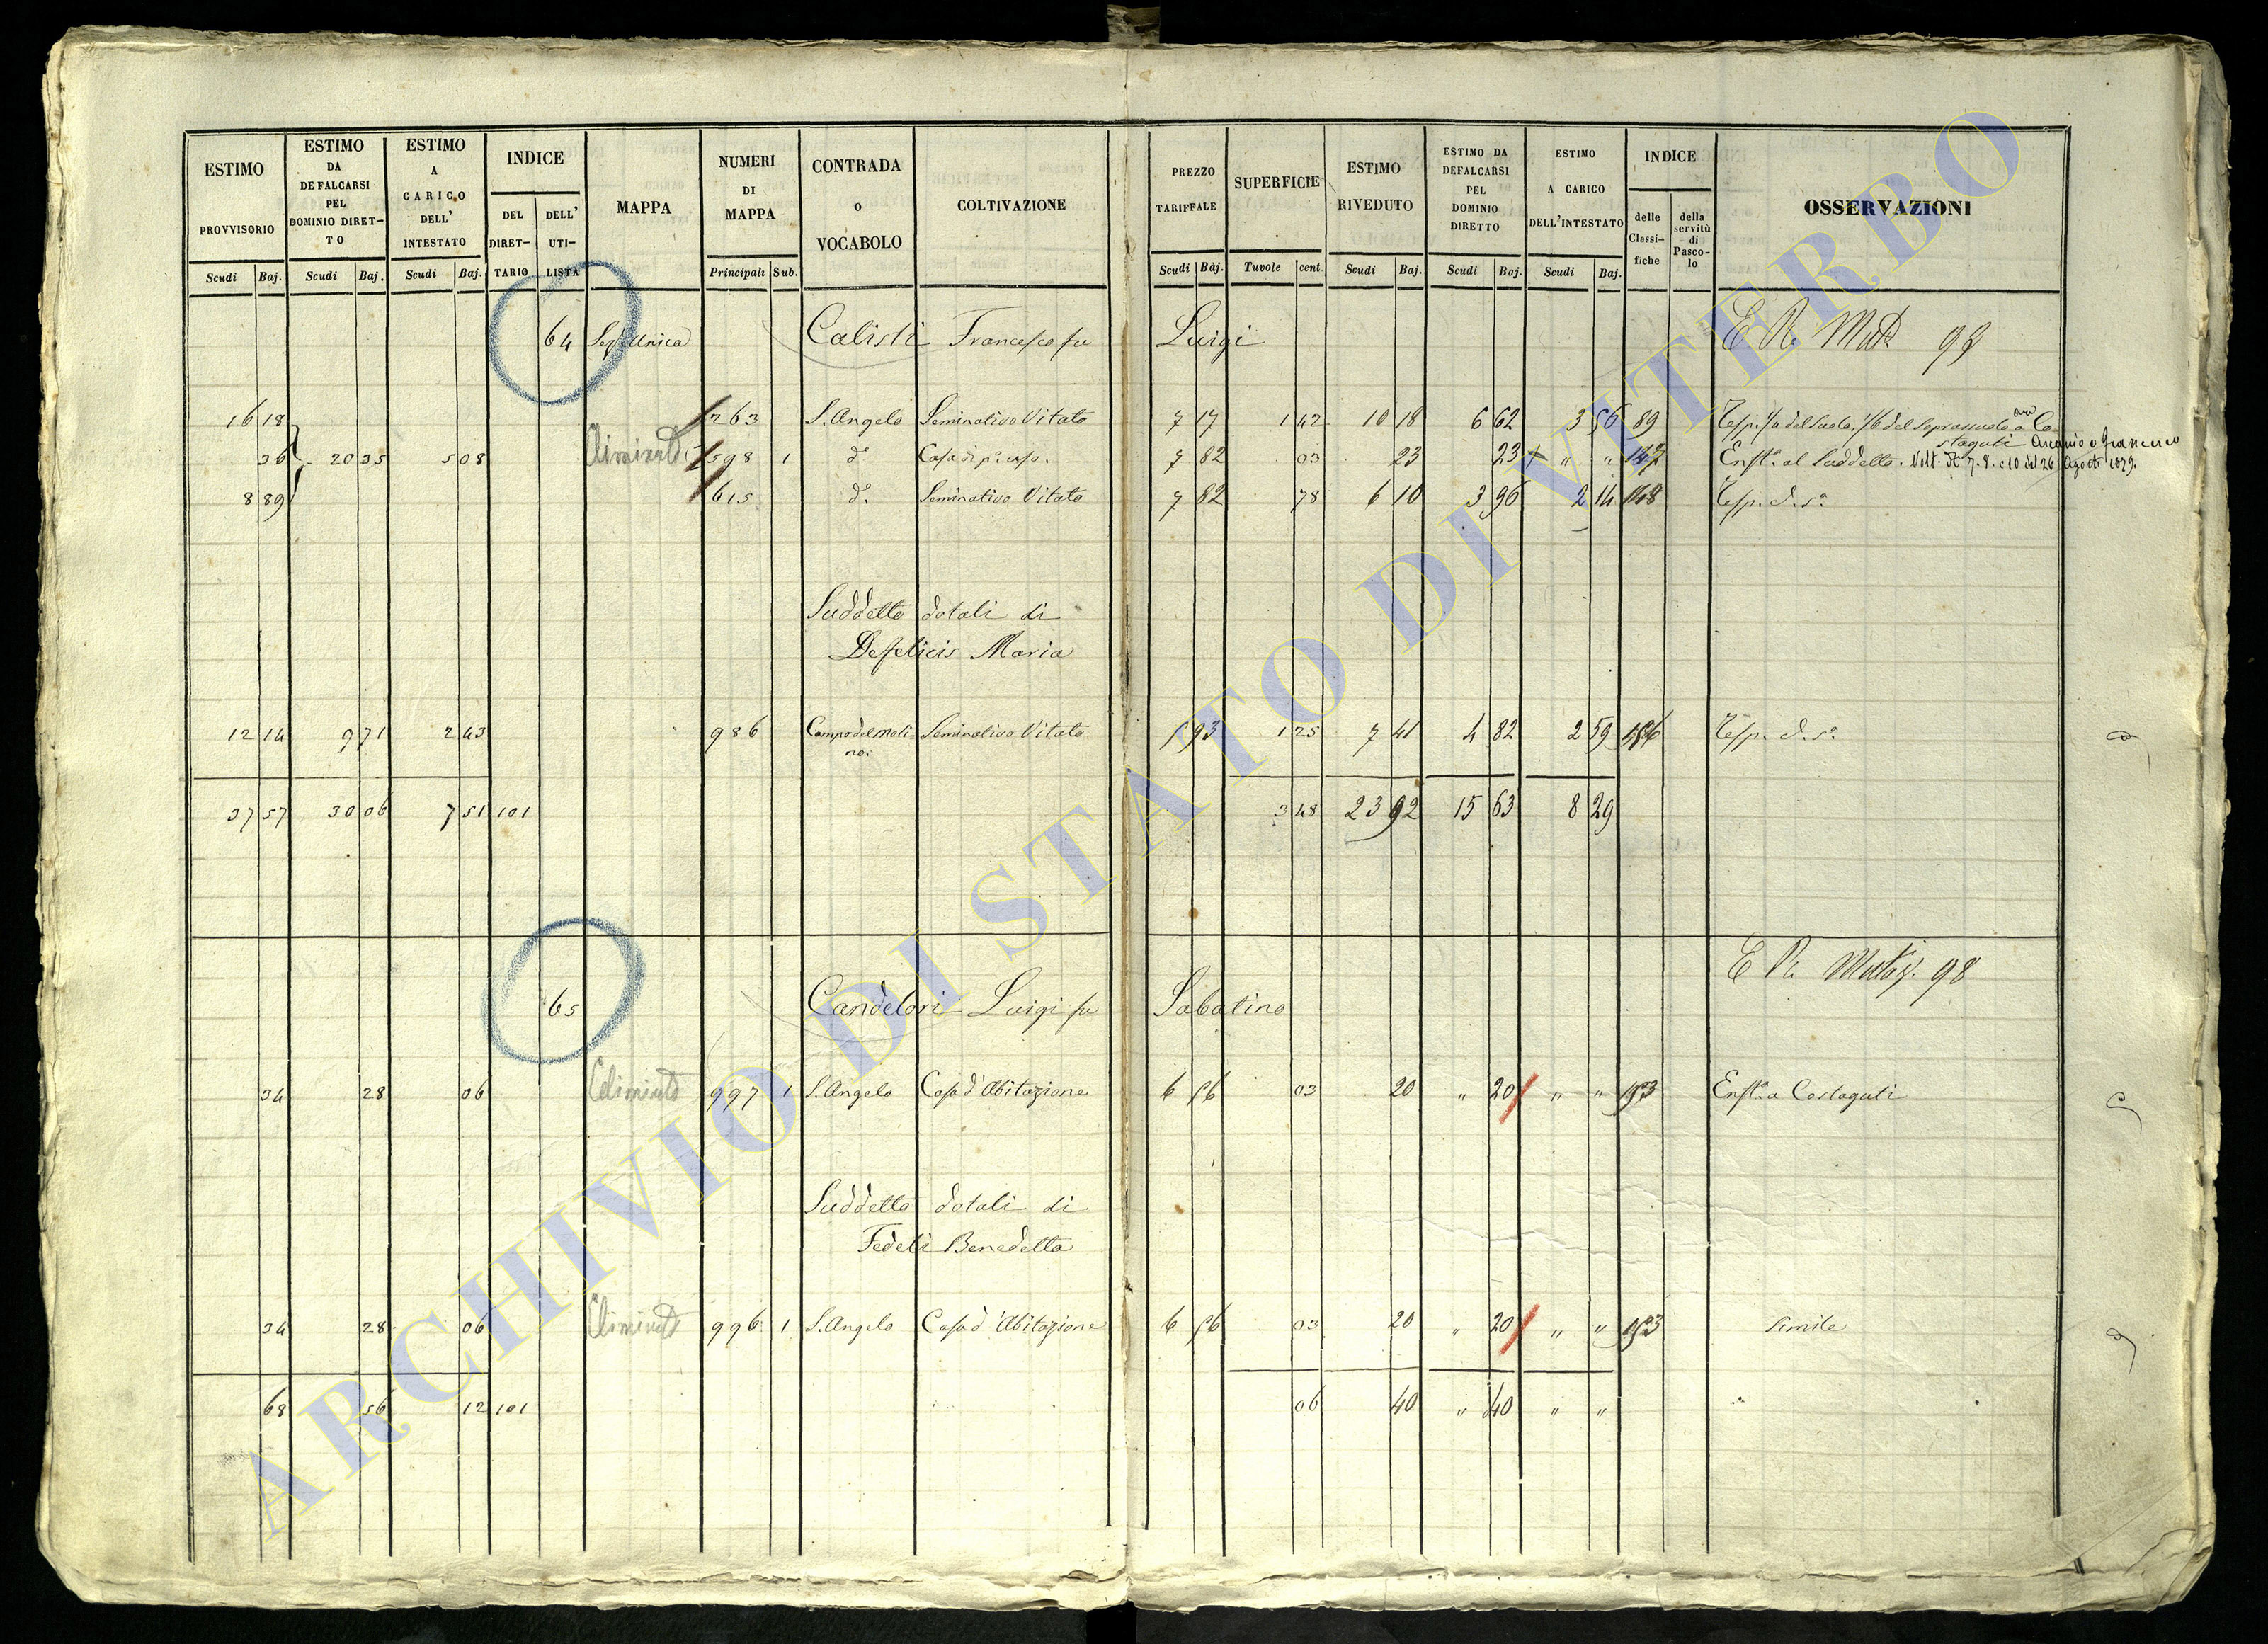 ESTIMO PROVVISORIO
ESTIMO DA DEFALCARSI PEL DOMINIO DIRETTO
ESTIMO A CARICO DELL' INTESTATO
INDICE
DEL DIRETTARIO
DELL' UTILISTA
MAPPA
NUMERI DI MAPPA
CONTRADA o VOCABOLO
COLTIVAZIONE
PREZZO TARIFFALE
SUPERFICIE
ESTIMO RIVEDUTO
ESTIMO DA DEFALCARSI PEL DOMINIO DIRETTO
ESTIMO A CARICO DELL'INTESTATO
INDICE
delle Classifiche
della servitù di Pascolo
OSSERVAZIONI
Scudi Baj. Scudi Baj. Scudi Baj. Principali Sub. Scudi Baj. Tavole cent. Scudi Baj. Scudi Baj. Scudi Baj.
64 Sez. Unica Calisti Francesco fu Luigi E R. Mut. 98
16 18 263 S. Angelo Seminativo Vitato 7 17 1 42 10 18 6 62 3 56 89 Resp. del suolo, del Soprasuolo a Costaguti Ascanio o Francesco
36 20 35 5 08 Eliminato 598 1 d.º Casa di p.º uso. 7 82 03 23 23 " " 147 Enft.ª al Suddetto. Volt. N. 7. 8. e 10 del 26 Agosto 1879.
8 89 615 d.º Seminativo Vitato 7 82 78 6 10 3 96 2 14 148 Resp. d. s.ª
Suddetto dotali di
Defelicis Maria
12 14 9 71 2 43 986 Campo del Molino. Seminativo Vitato 5 93 1 25 7 41 4 82 2 59 186 Resp. d. s.ª
37 57 30 06 7 51 101 3 48 23 92 15 63 8 29
65 Candelori Luigi fu Sabatino E R. Mutaz. 98
34 28 06 Eliminato 997 1 S. Angelo Casa d'Abitazione 6 56 03 20 " 20 " " 193 Enft.ª a Costaguti
Suddetto dotali di
Fedeli Benedetta
34 28 06 Eliminato 996 1 S. Angelo Casa d'Abitazione 6 56 03 20 " 20 " " 193 simile
68 56 12 101 06 40 " 40 " "
ARCHIVIO DI STATO DI VITERBO